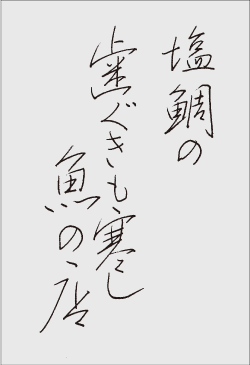 塩鯛の
歯ぐきも寒し
魚の店